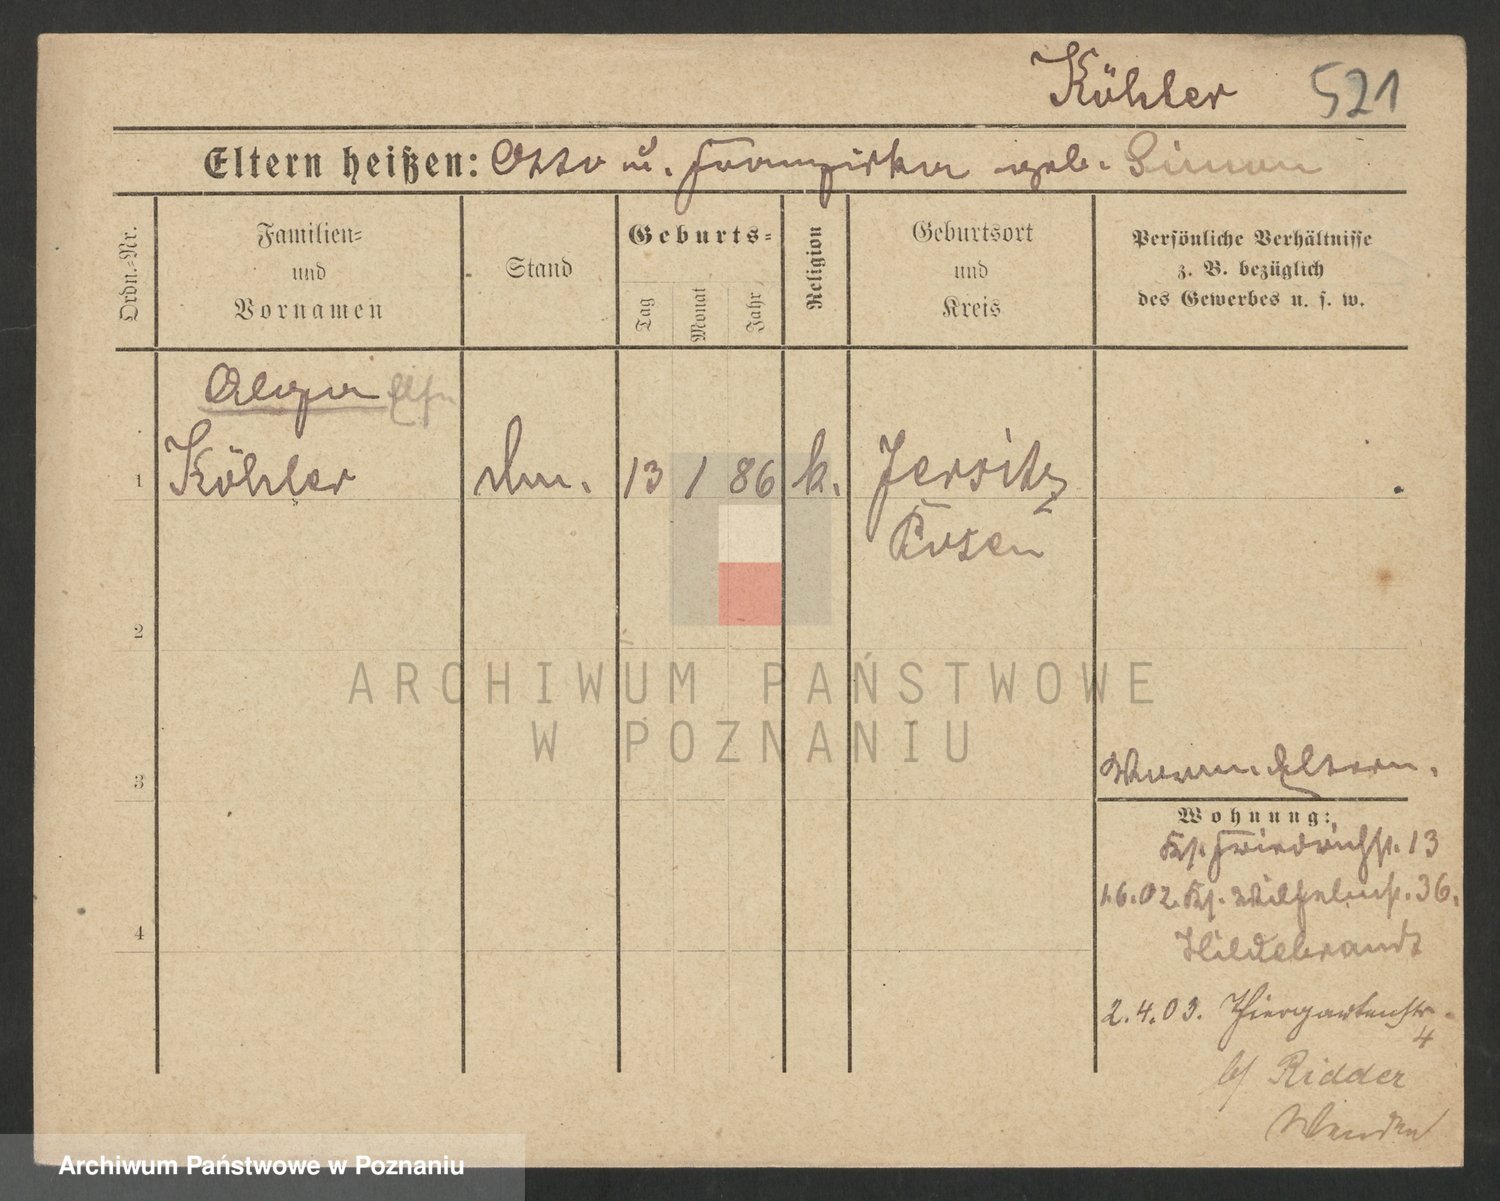 Köhler 521
Eltern heißen: Otto u. Franziska geb. Simon
Ordn.-Nr.
Familien-
und
Vornamen
Stand
Geburts-
Tag
Monat
Jahr
Religion
Geburtsort
und
Kreis
Persönliche Verhältnisse
z. B. bezüglich
des Gewerbes u. s. w.
Olga
1 Köhler 13 1 86 k. Jersitz
Posen
2
3
4
ARCHIWUM PAŃSTWOWE
W POZNANIU
Eltern.
Wohnung:
Friedrichst. 13
1.6.02. Wilhelmst. 36.
Hildebrandt
2.4.03. Thiergartenstr.
4
b/ Ridder
Archiwum Państwowe w Poznaniu